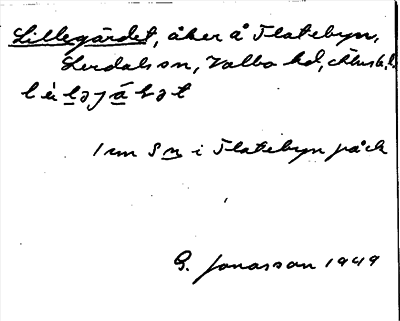 Lillegärdet, åker å Flatebyn,
Lerdals sn, Valbo hd, Älvsb. l.
1 rum S m i Flatebyn på ck
G. Jonasson 1949